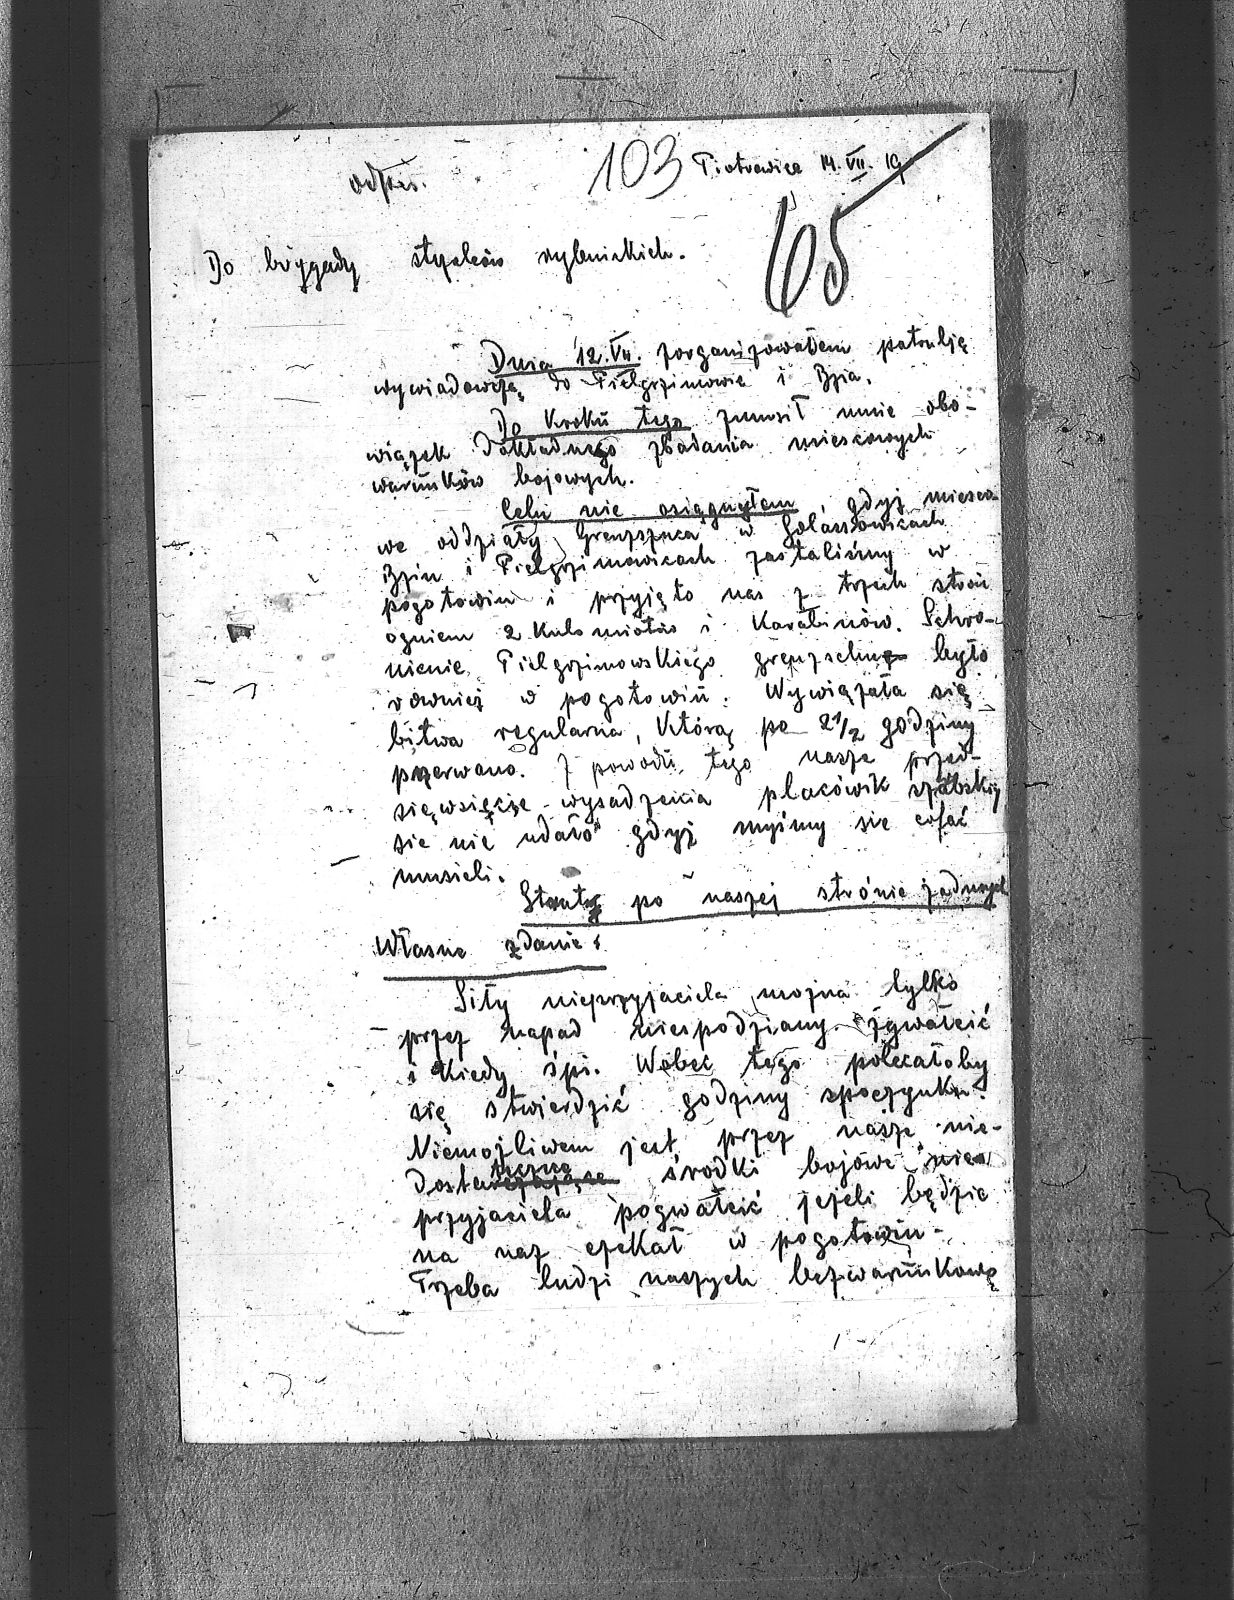 odpis.
103 Piotrowice 14. VII. 19
65
Do brygady stzelców rybnickich.
Dnia 12. VII. zorganizowałem patrulję
wywiadowczą do Pielgrzimowic i Bzia.
Do kroku tego zmusił mnie obo-
wiązek dokładnego zbadania miescowych
warunków bojowych.
Celu nie osiągnąłem gdyż miesco
we oddziały Grenzszuca w Golassowicach
Bziu i Pielgrzimowicach zastaliśmy w
pogotowiu i przyjęto nas z trzech stron
ogniem 2 kulomiotów i karabinów. Schro-
nienie Pielgrzimowskiego grenzschuz było
również w pogotowiu. Wywiązała się
bitwa regularna, którą po 2 1/2 godziny
przerwano. Z powodu tego nasze przed-
sięwsięcie wysadzenia placówik
sie nie udało gdyż myśmy sie cofać
musieli.
Straty po naszej strónie żadnych
Własne zdanie:
Siły nieprzyjaciela można tylko
przez napad niespodziany zgwałcić
i kiedy śpi. Wobec tego polecałoby
się stwierdzić godziny spoczynku.
Niemożliwem jest przez nasze nie-
dostateczne środki bojowe nie
przyjaciela pogwałcić jeżeli będzie
na nas czekał w pogotowiu.
Trzeba ludzi naszych bezwarunkowo